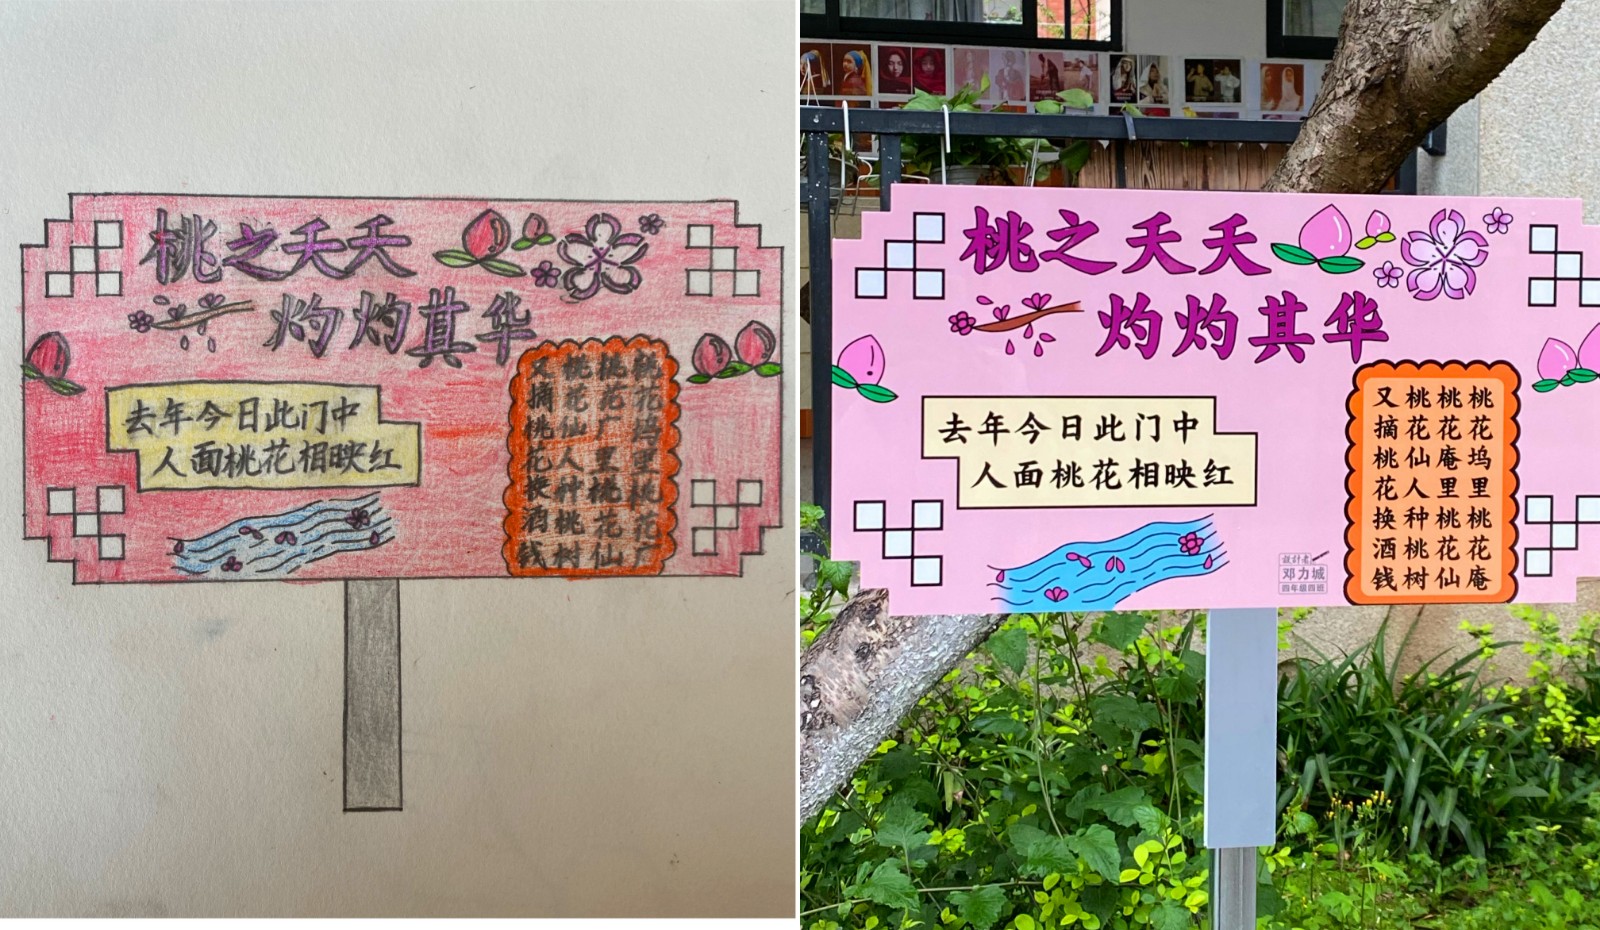 桃之夭夭
灼灼其华
去年今日此门中
人面桃花相映红
桃花坞里桃花广
桃花广里桃花仙
桃花仙人种桃树
又摘桃花换酒钱
桃之夭夭
灼灼其华
去年今日此门中
人面桃花相映红
桃花坞里桃花庵
桃花庵里桃花仙
桃花仙人种桃树
又摘桃花换酒钱
設計者
邓力城
四年级四班